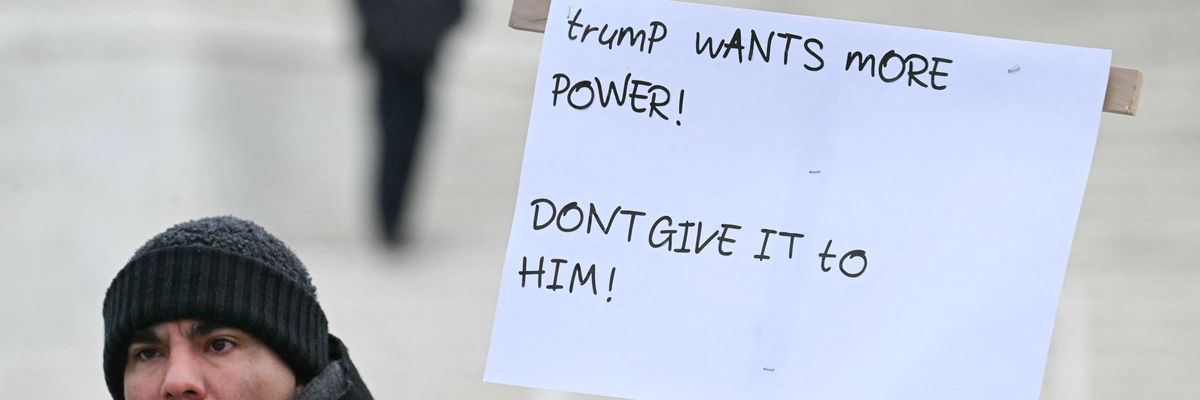 trumP WANTS mORE
POWER!
DONT GIVE IT to
HIM!